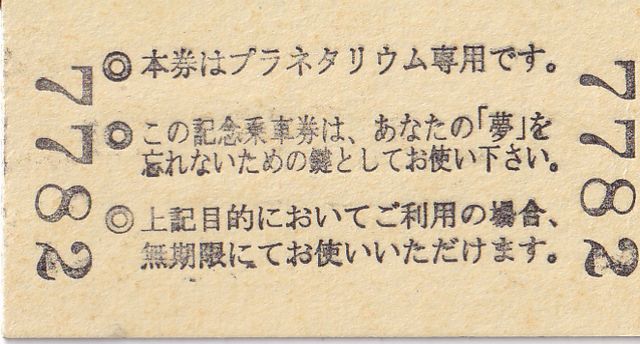 7782
◎本券はプラネタリウム専用です。
◎この記念乗車券は、あなたの「夢」を
忘れないための鍵としてお使い下さい。
◎上記目的においてご利用の場合、
無期限にてお使いいただけます。
7782